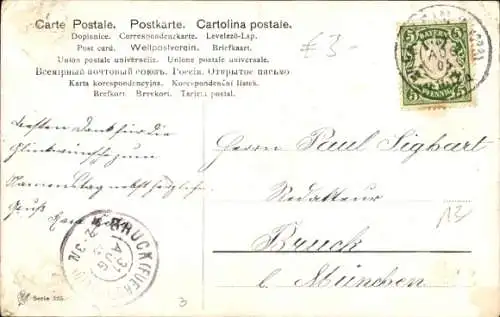 Carte Postale. Postkarte. Cartolina postale.
Dopisnice. Correspondenzkarte. Levelező-Lap.
Post card. Weltpostverein. Briefkaart.
Union postale universelle. Unione postale universale.
Всемірный почтовый союзъ. Россія. Открытое письмо
Karta korespondencyjna. Korespondenční lístek.
Brefkort. Brevkort. Tarjeta postal.
£3-
BAYERN
5 5
PFENNIG
besten Dank für die
Glückwünsche zum
Namenstag nebst herzlichen
Gruß
Herrn Paul Sighart
Redakteur
Bruck
b. München
13
BRUCK (FUER
31
AUG
2-3N
Serie 325
3